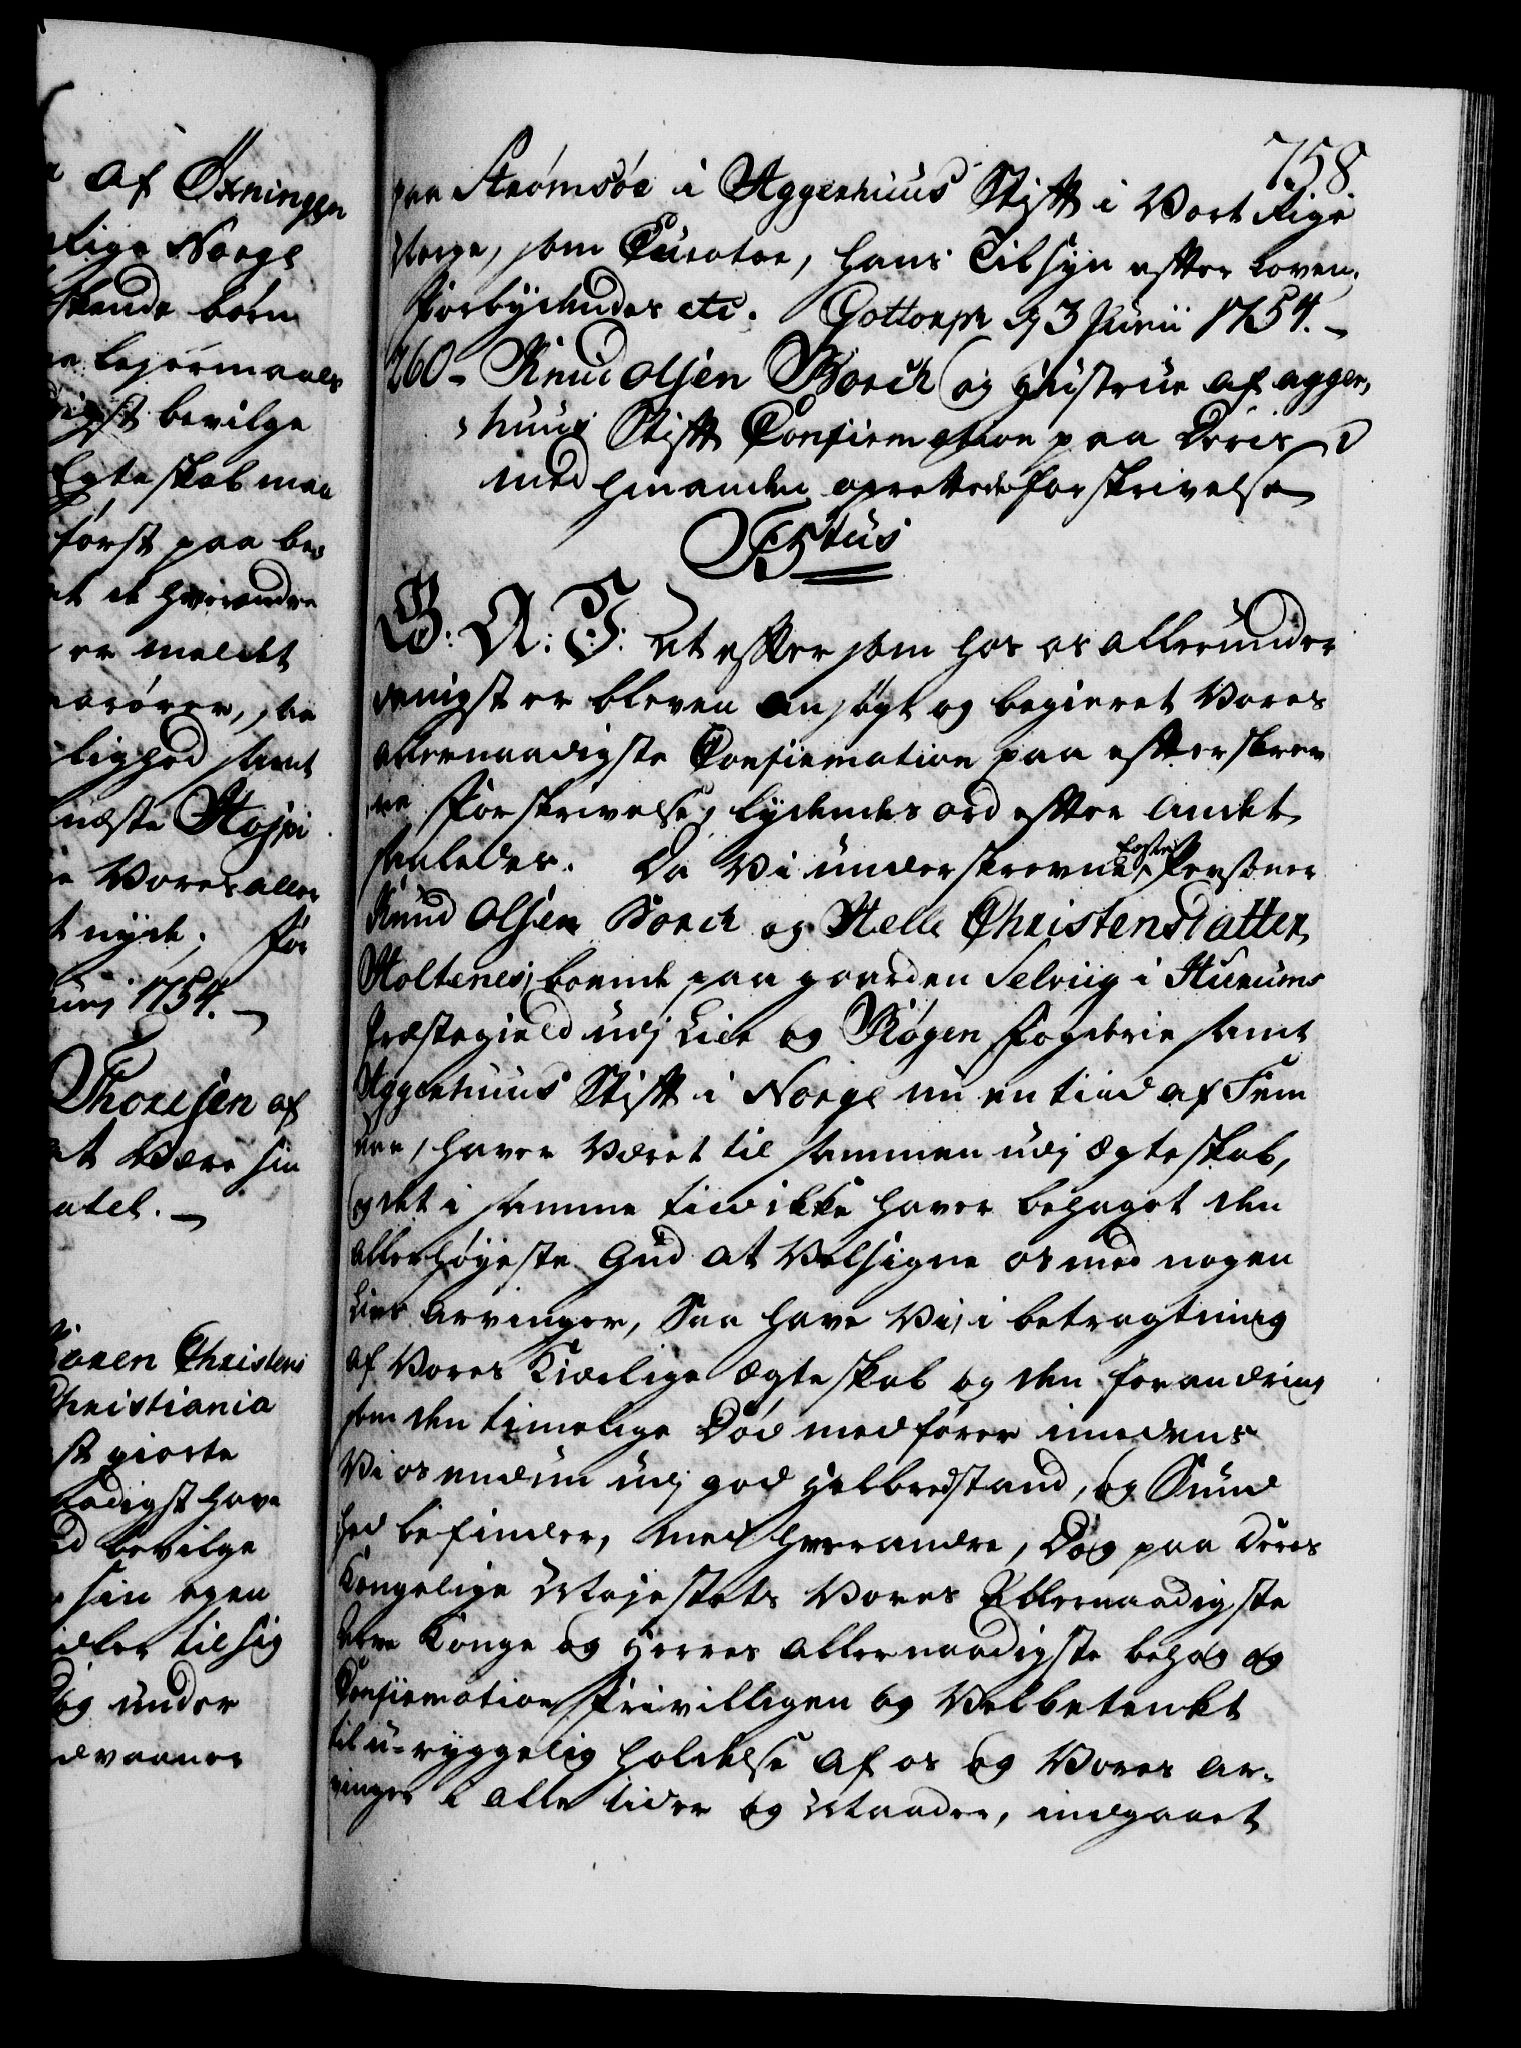 af Øxningen
Rige Norge
børn
leyermaals
bevilge
Egteskab maa
først paa be
at de hverandre
er meldt
lighed samt
næste
Vores aller
t nyde; for
Junj 1754.
Thoresen af
at være sin
Christens
Christiania
st giorte
naadigst have
bevilge
sin egen
til sig
og under
758.
paa Strømsøe i Aggerhuus Stift i Vort Rige
Norge, som Curator, hans Tilsyn efter Loven,
Forbydendes etc. Gottorph d 3 Junii 1754.
260 Knud Olsen Borch og Hustrue af Agger,
huus Stift Confirmation paa Deris
med hinanden oprettede Forskrivelse
F 5tus
G: A: V: at efftersom hos os allerunder
danigst er bleven ansøgt og begieret Vores
allernaadigste Confirmation paa effterskrev
ne Forskrivelse, lydendes ord efter andet
saaledes. Da Vi underskrevne Persohner
Knud Olsen Borch og Helle Christensdatter
Holtenes, boende paa gaarden Selvig i Hurums
Præstegield udj Lier og Røgen Fogderie samt
Aggerhuus Stift i Norge nu en tiid af Fem
aar, haver Været til sammen udj Ægteskab,
og det i samme tiid ikke haver behaget den
allerhøyeste Gud at Velsigne os med nogen
Livs arvinger, Saa have Vi, i betragtning
af Vores Kierlige Ægteskab og den forandring
som den timelige Død medfører imedens
Vi os endnu udj god Helbredstand, og Sund
hed befinder, med hverandre, Dog paa Deres
Kongelige Majestets Vores Allernaadigste
Arve Konge og Herres allernaadigste behag og
Confirmation Frivilligen og Velbetenkt
til u-ryggelig holdelse af os og Vores ar-
vinger i alle tider og Maader, indgaaet